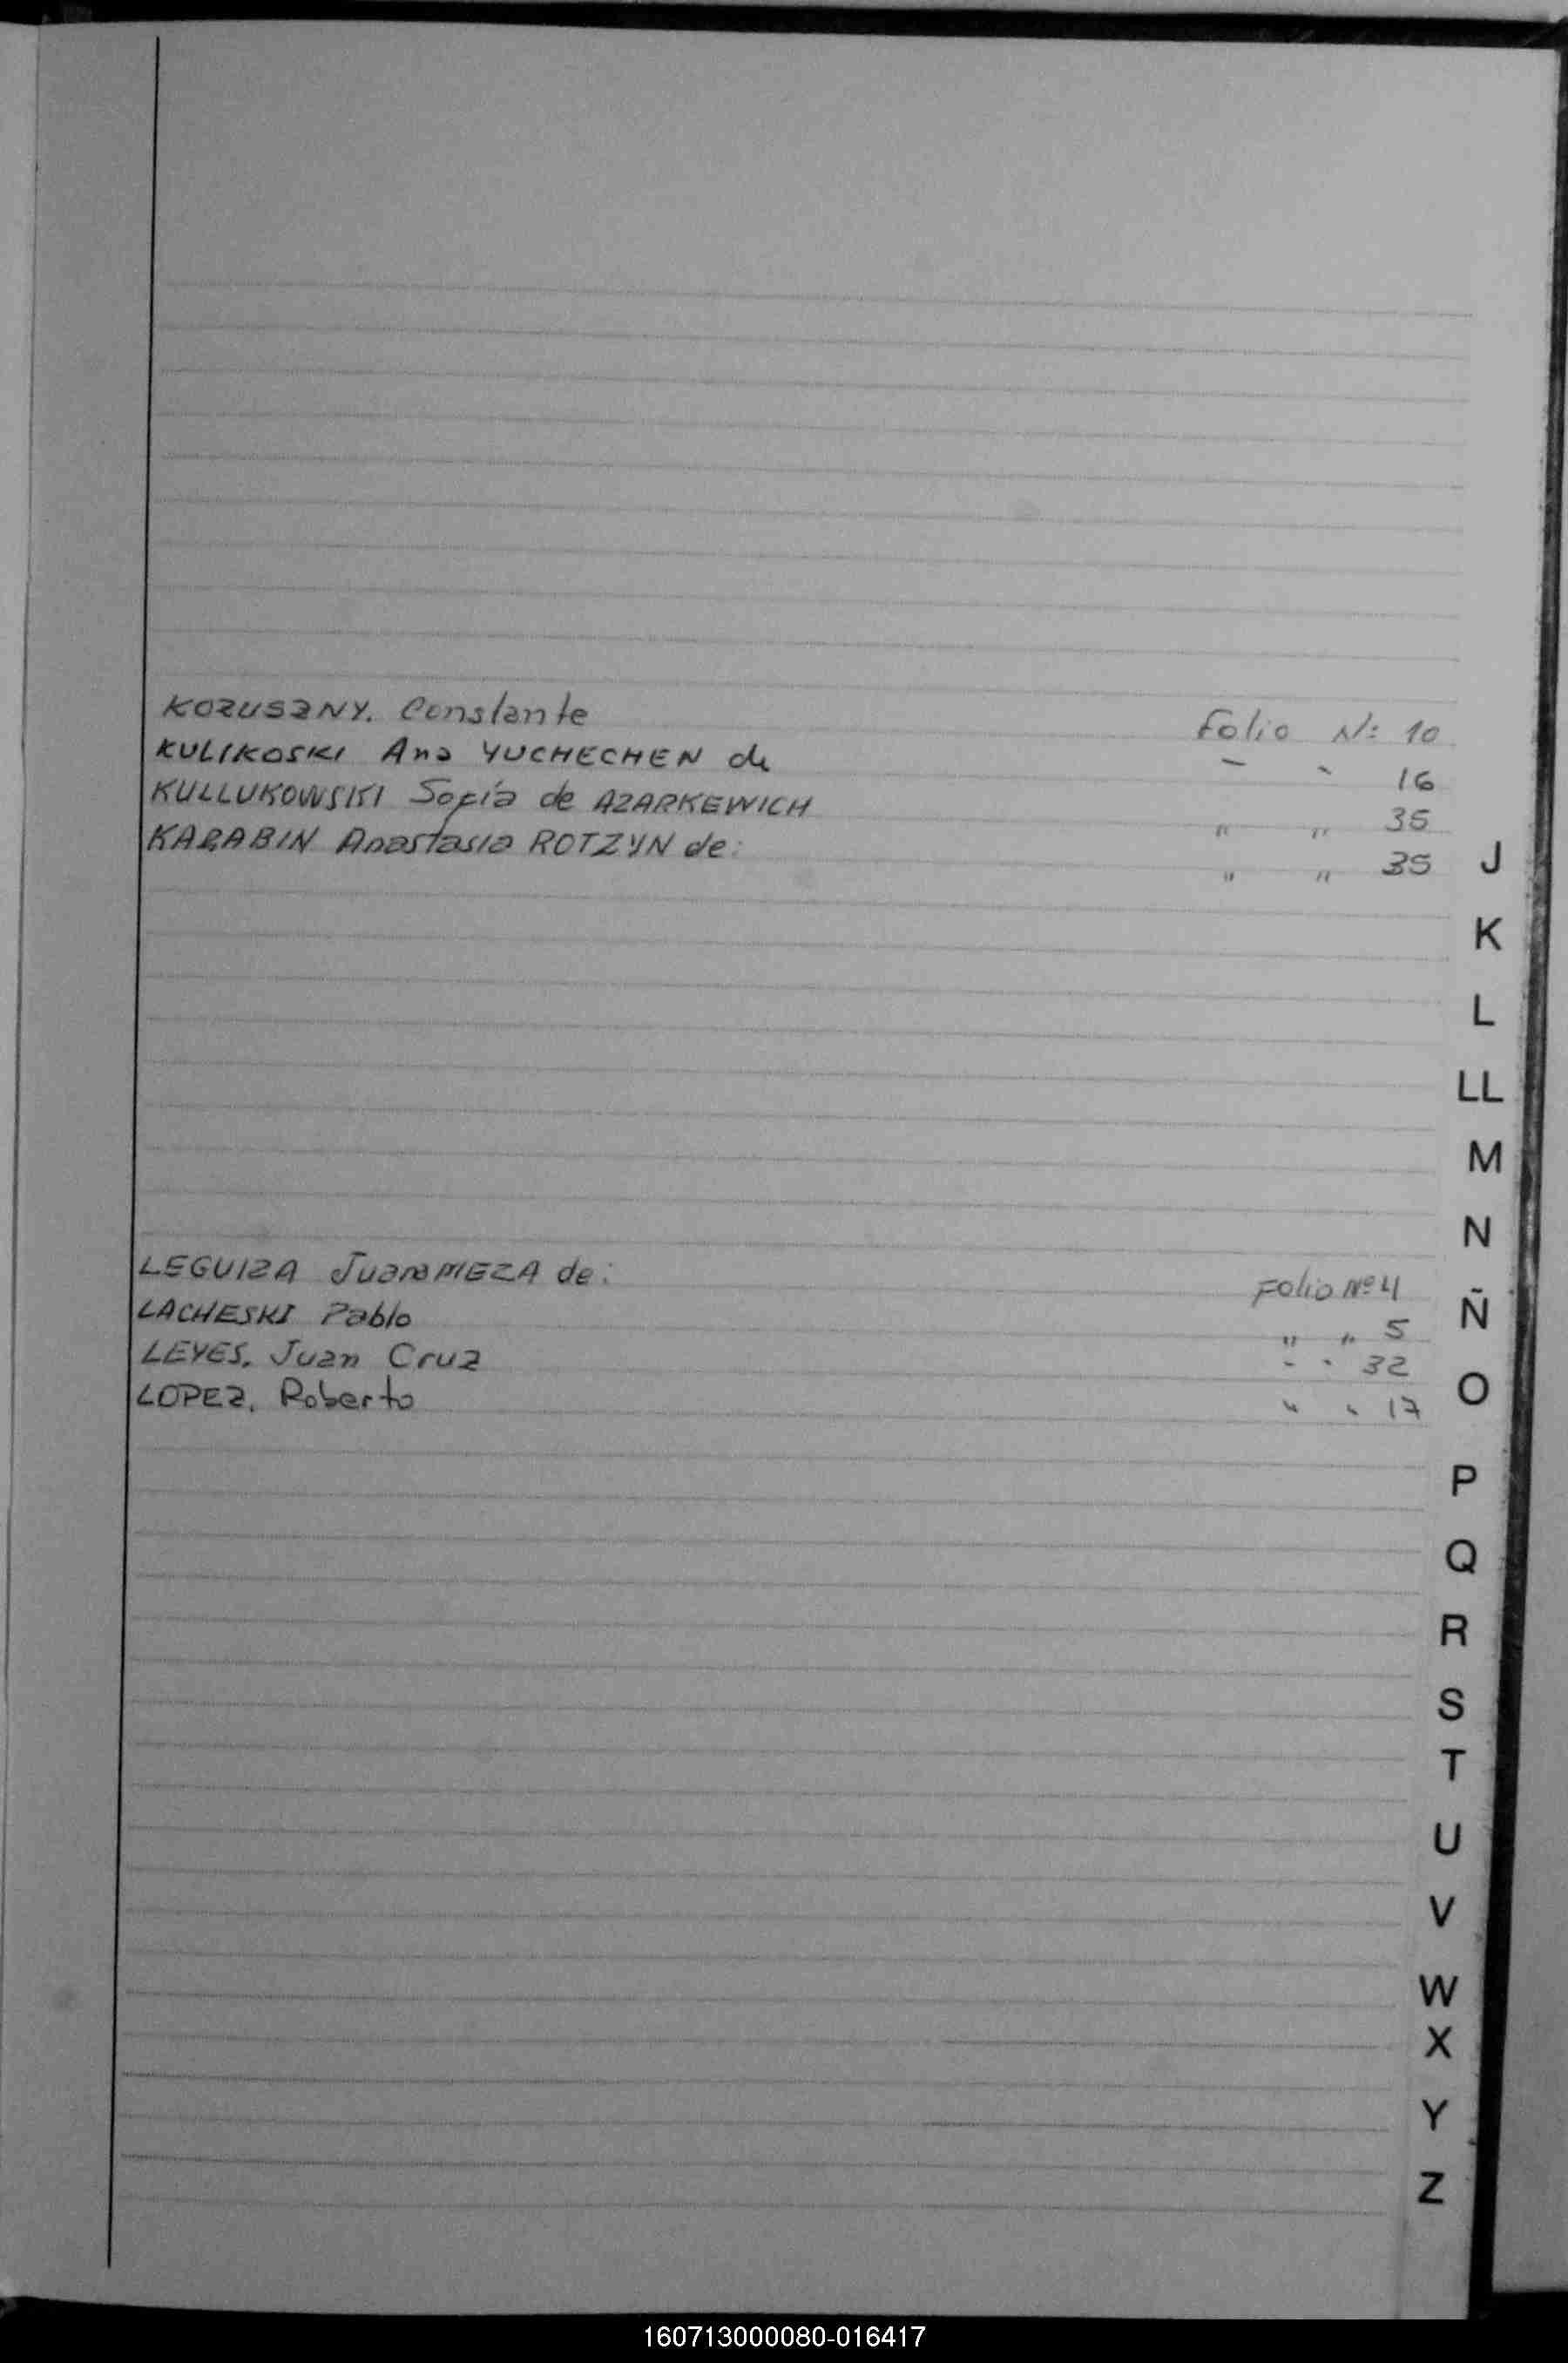 KOZUSZNY. Constante Folio Nº 10
KULIKOSKI Ana YUCHECHEN de " " 16
KULLUKOWSKI Sofía de AZARKEWICH " " 35
KARABIN Anastasia ROTZYN de: " " 35
J
K
L
LL
M
N
LEGUIZA Juana MEZA de: Folio Nº 4
Ñ
LACHESKI Pablo " " 5
LEYES. Juan Cruz " " 32
O
LOPEZ. Roberto " " 17
P
Q
R
S
T
U
V
W
X
Y
Z
160713000080-016417